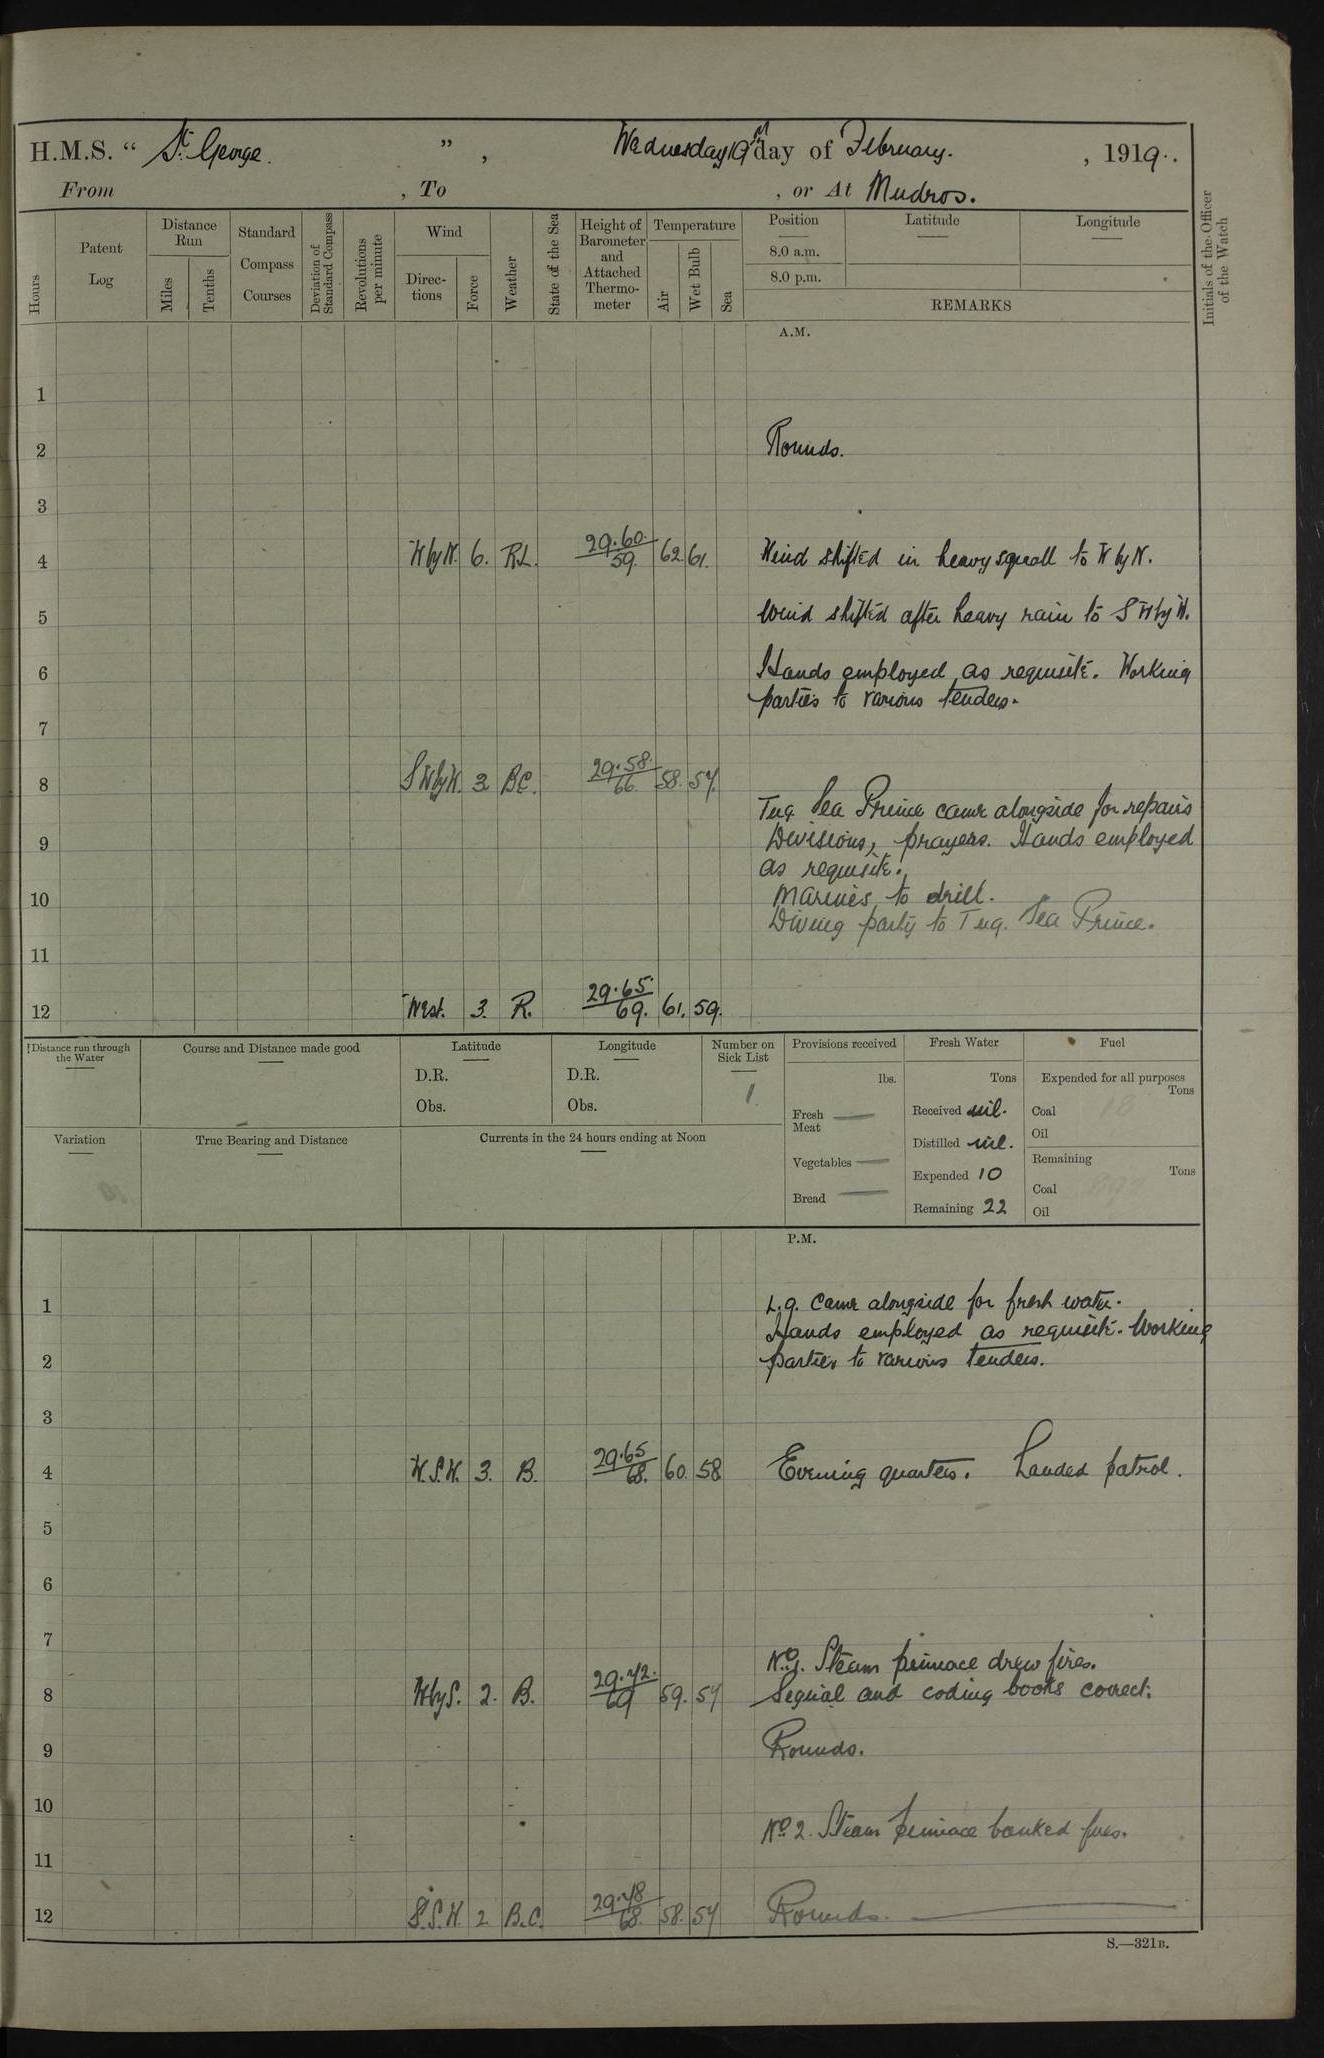 H.M.S. “ St. George. ” , Wednesday 19th day of February. , 1919.
From , To , or At Mudros.
Hours
Patent Log
Distance Run
Miles
Tenths
Standard Compass Courses
Deviation of Standard Compass
Revolutions per minute
Wind
Direc-tions
Force
Weather
State of the Sea
Height of Barometer and Attached Thermo-meter
Temperature
Air
Wet Bulb
Sea
Position
Latitude
Longitude
8.0 a.m.
8.0 p.m.
REMARKS
Initials of the Officer of the Watch
A.M.
1
2 Rounds.
3
4 W by N. 6. RL. 29.60 59. 62 61. Wind shifted in heavy squall to W by N.
5 Wind shifted after heavy rain to SW by W.
6 Hands employed as requisite. Working
parties to various tenders.
7
8 SW by W. 3 BC. 29.58 66 58. 57.
Tug Sea Prince came alongside for repairs
9 Divisions, prayers. Hands employed
as requisite.
10 Marines to drill.
Diving party to Tug. Sea Prince.
11
12 West. 3. R. 29.65 69. 61. 59.
Distance run through the Water
Course and Distance made good
Latitude
D.R.
Obs.
Longitude
D.R.
Obs.
Number on Sick List
1.
Provisions received
lbs.
Fresh Meat
Vegetables
Bread
Fresh Water
Tons
Received nil.
Distilled nil.
Expended 10
Remaining 22
Fuel
Expended for all purposes
Tons
Coal 18
Oil
Remaining
Tons
Coal
Oil
Variation
True Bearing and Distance
Currents in the 24 hours ending at Noon
P.M.
1 L.9. came alongside for fresh water.
Hands employed as requisite. Working
2 parties to various tenders.
3
4 W.S.W. 3. B. 29.65 68. 60. 58 Evening quarters. Landed patrol.
5
6
7
No 1. Steam pinnace drew fires.
8 W by S. 2. B. 29.72. 69 59. 57 Signal and coding books correct.
9 Rounds.
10
No 2. Steam pinnace banked fires.
11
12 S.S.W. 2 B.C. 29.78 68. 58. 57 Rounds.
S.—321B.